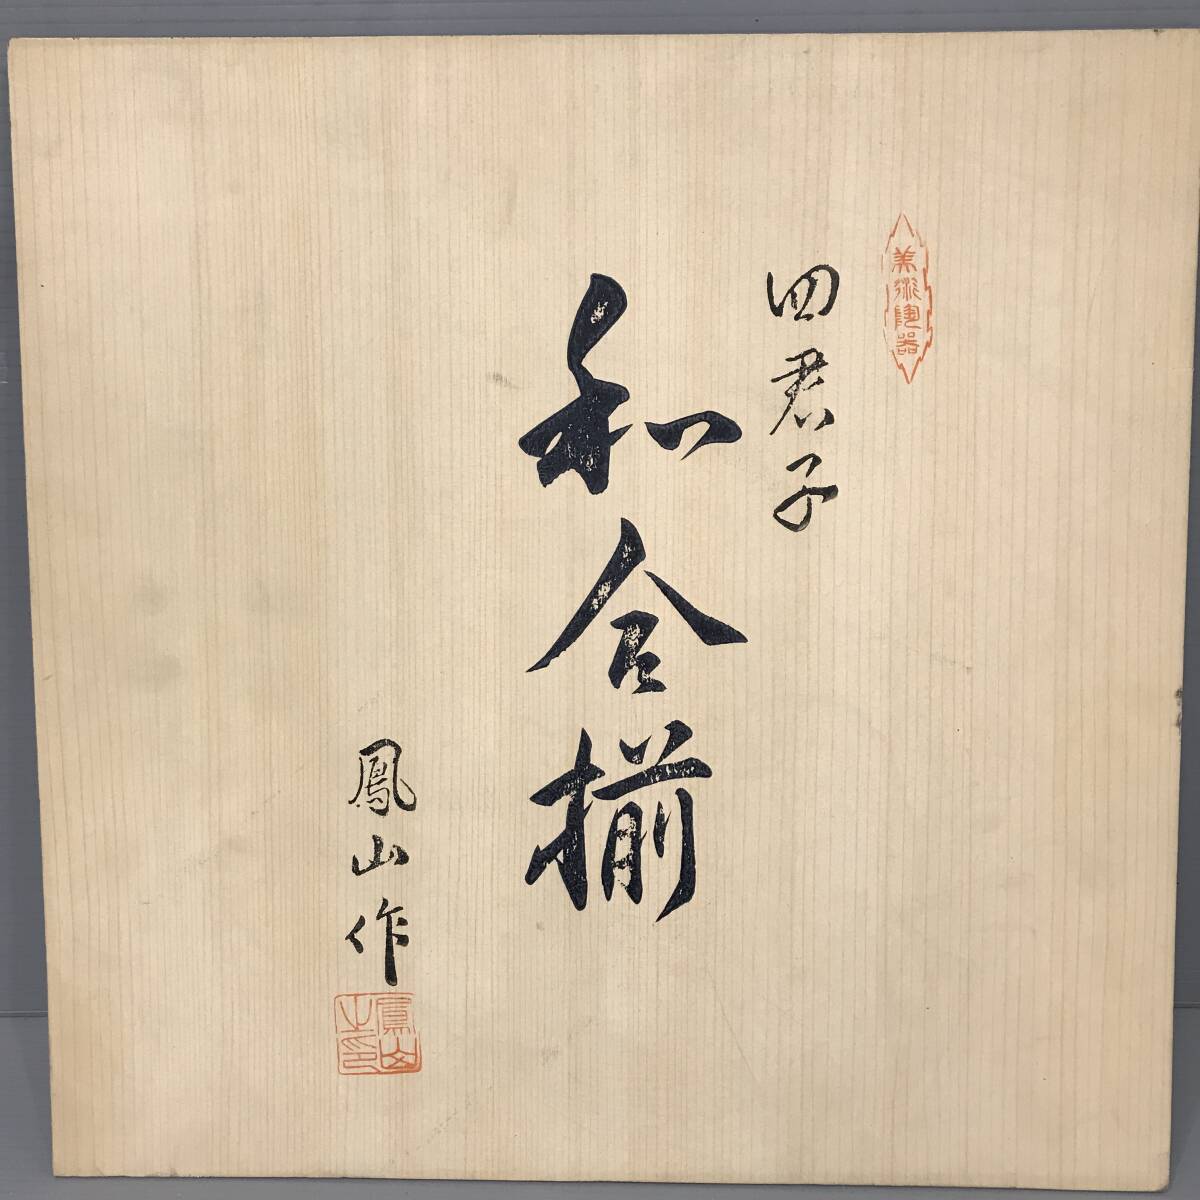 美術陶器
四君子
和合揃
鳳山作
鳳山之印